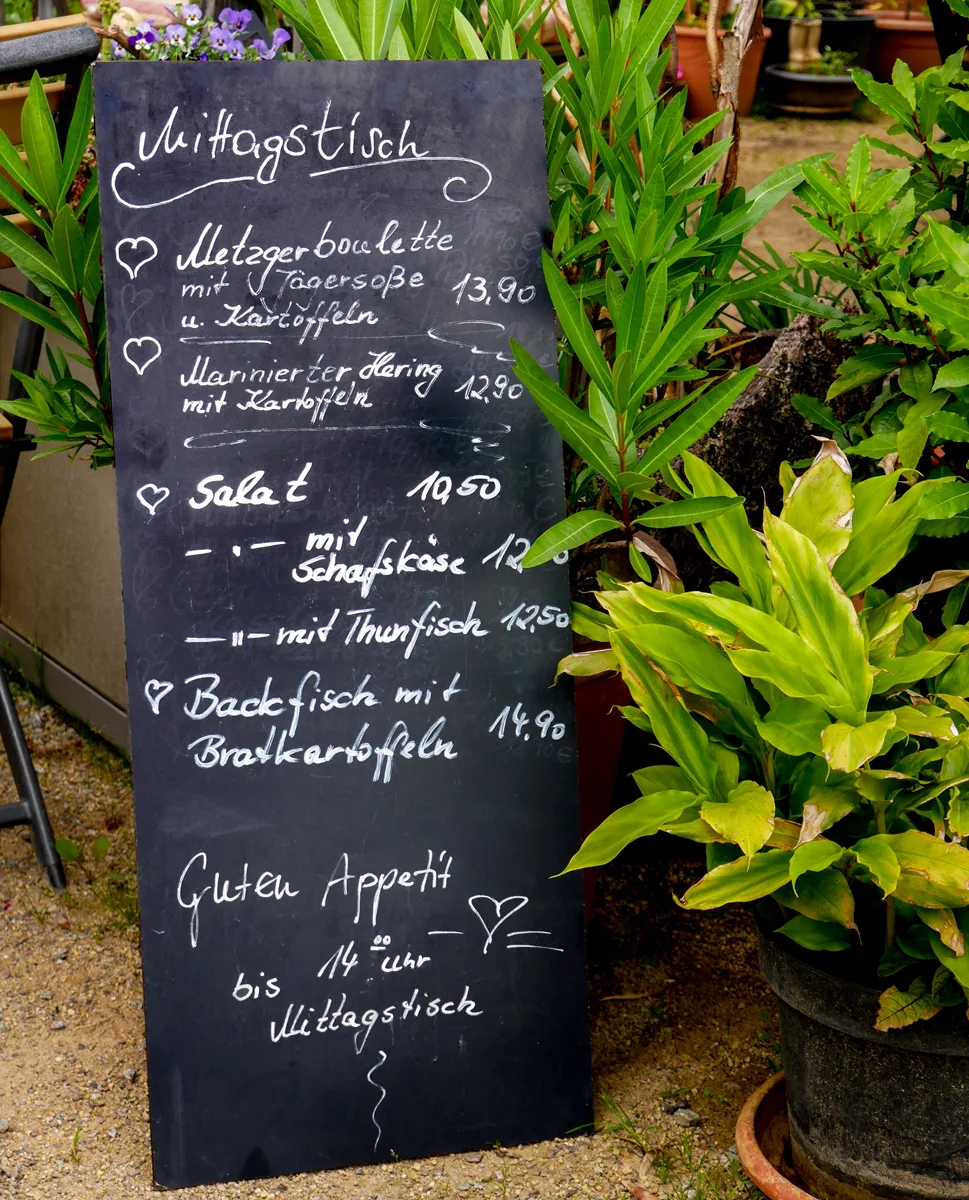 Mittagstisch
Metzgerboulette
mit Jägersoße 13,90
u. Kartoffeln
Marinierter Hering
mit Kartoffeln 12,90
Salat 10,50
— " — mit
Schafskäse
— " — mit Thunfisch 12,50
Backfisch mit
Bratkartoffeln 14,90
Guten Appetit
14 00 Uhr
bis
Mittagstisch